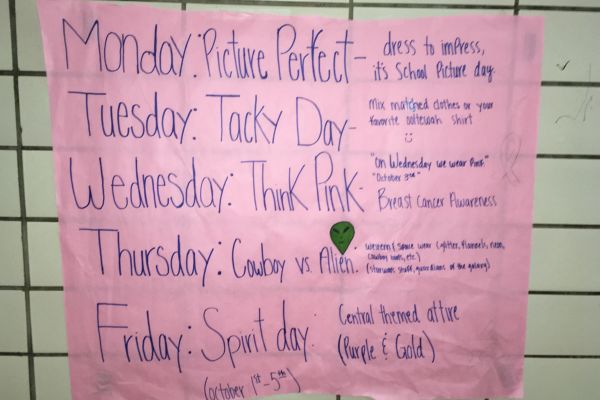 Monday: Picture Perfect- dress to imPress,
it's School Picture day.
Tuesday: Tacky Day- Mix matched clothes or your
favorite ooltewah shirt
Wednesday: Think Pink- "On Wednesday we wear Pink"
"October 3rd"
Breast Cancer Awareness
Thursday: Cowboy vs. Alien: Western & Space wear (glitter, flannels, neon,
cowboy boots, etc.)
(starwars stuff, guardians of the galaxy)
Friday: Spirit day: Central themed attire
(Purple & Gold)
(october 1st-5th)